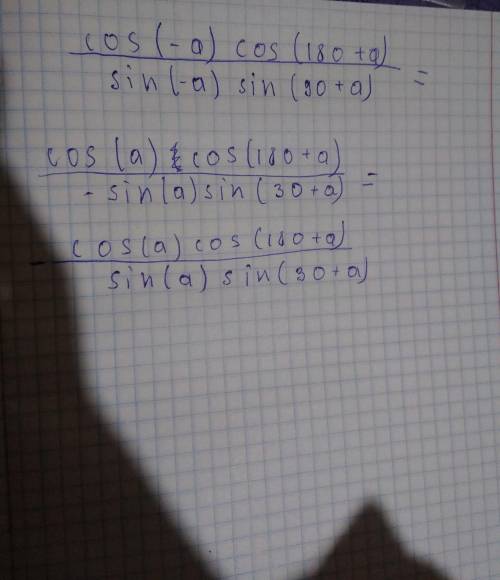 cos (-a) cos (180+a)
sin (-a) sin (90+a) =
cos (a) cos (180+a)
- sin (a) sin (30+a) =
- cos (a) cos (180+a)
sin (a) sin (30+a)